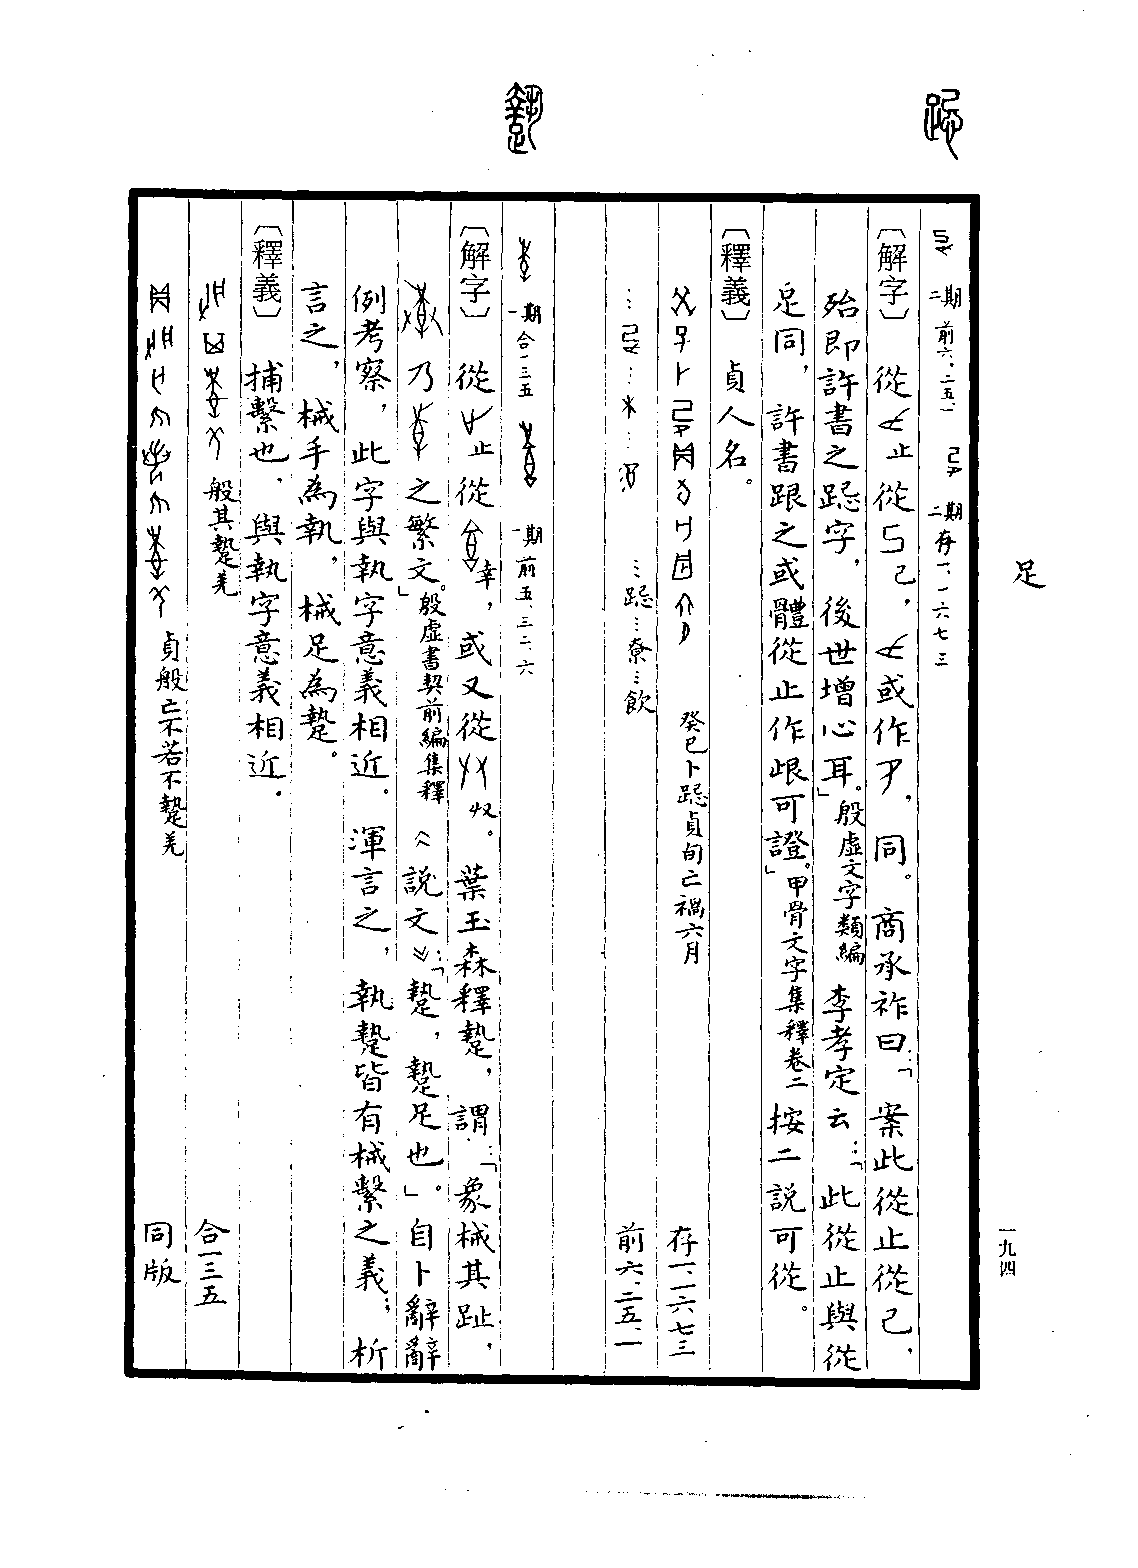 足
一九四
二期 前六·二五·一 二期 存一·一六七三
〔解字〕 從止從己，或作，同。商承祚曰：「案此從止從己，
殆即許書之跽字，後世增心耳。」殷虛文字類編 李孝定云：「此從止與從
足同，許書跟之或體從止作㫔可證。」甲骨文字集釋卷二 按二説可從。
〔釋義〕 貞人名。
癸巳卜跽貞旬亡禍六月 存一·一六七三
…跽…尞…飲 前六·二五·一
一期 合一三五 一期 前五·三二·六
〔解字〕 從止從㚔，或又從収。葉玉森釋𡠗，謂：「象械其趾，
乃之繁文。」殷虛書契前編集釋 《説文》：「𡠗，𡠗足也」。自卜辭辭
例考察，此字與執字意義相近。渾言之，執𡠗皆有械繫之義；析
言之，械手為執，械足為𡠗。
〔釋義〕 捕繫也，與執字意義相近。
般其𡠗羌 合一三五
貞般亡不若不𡠗羌 同版